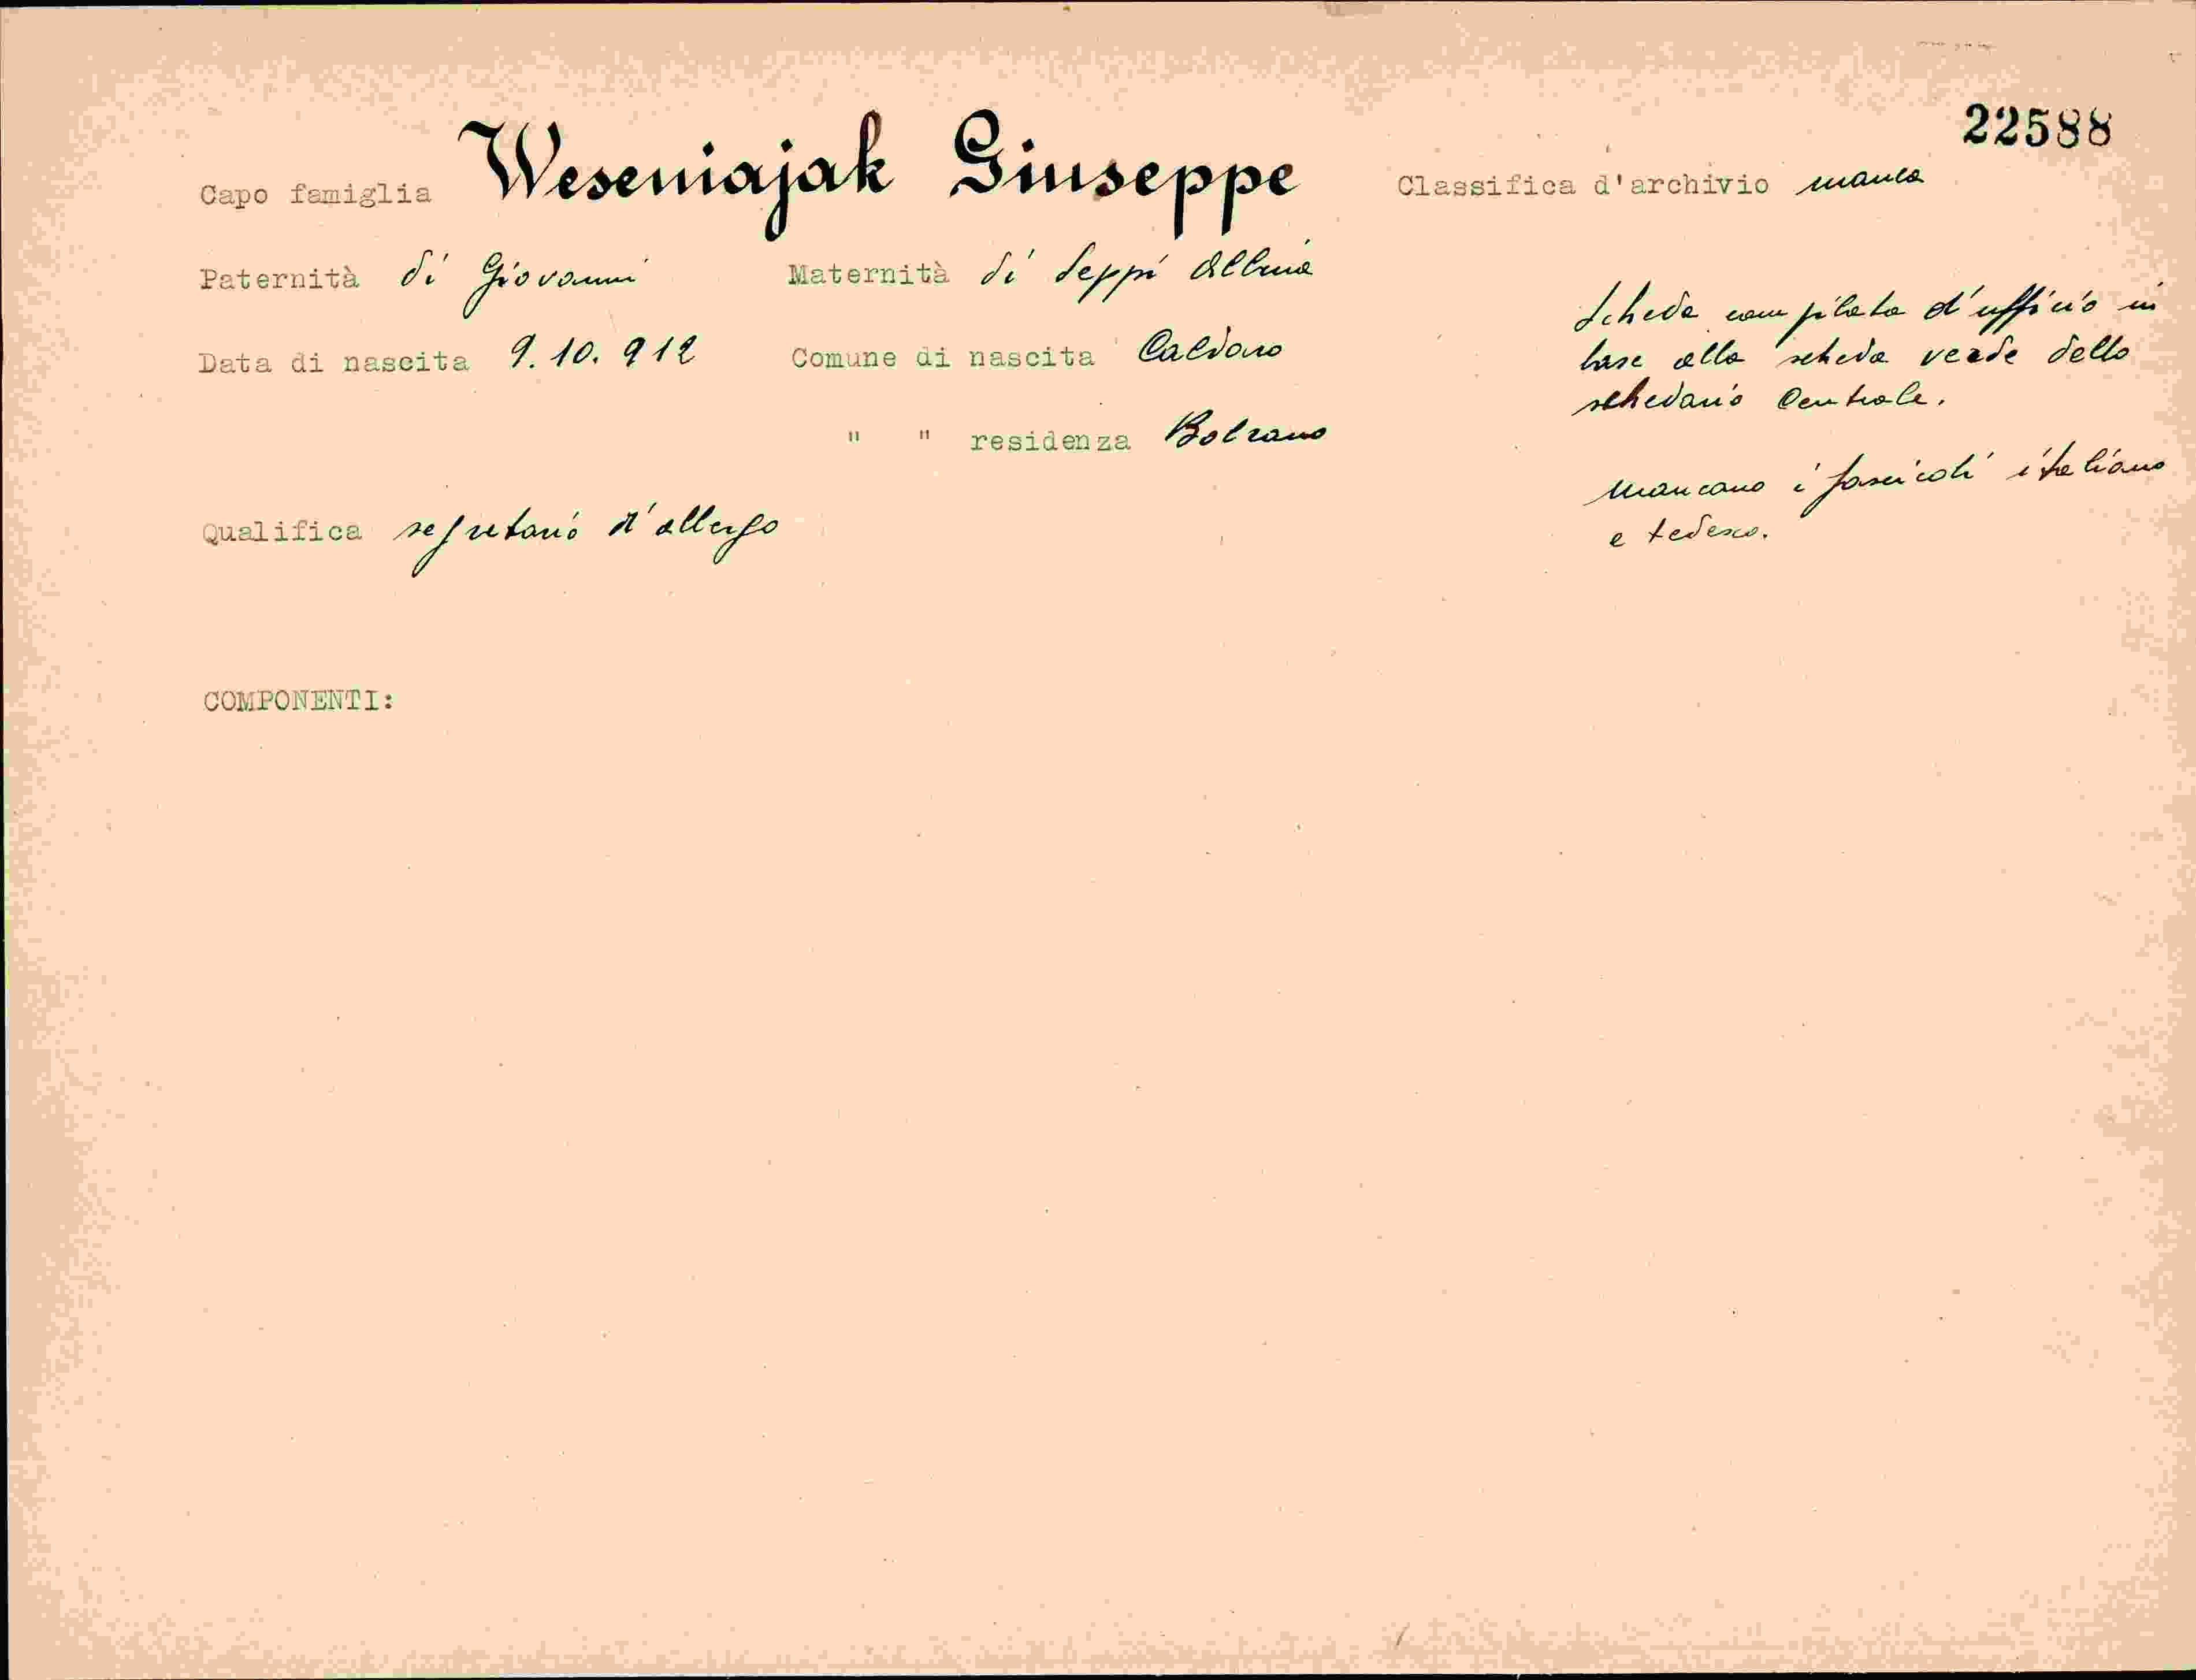 22588
Capo famiglia Weseniajak Giuseppe Classifica d'archivio manca
Paternità di Giovanni Maternità di Seppi Albina
Data di nascita 9.10.912 Comune di nascita Caldaro
" " residenza Bolzano
Qualifica segretario d'albergo
Scheda compilata d'ufficio in
base alla scheda verde dello
schedario Centrale.
mancano i fascicoli italiano
e tedesco.
COMPONENTI: